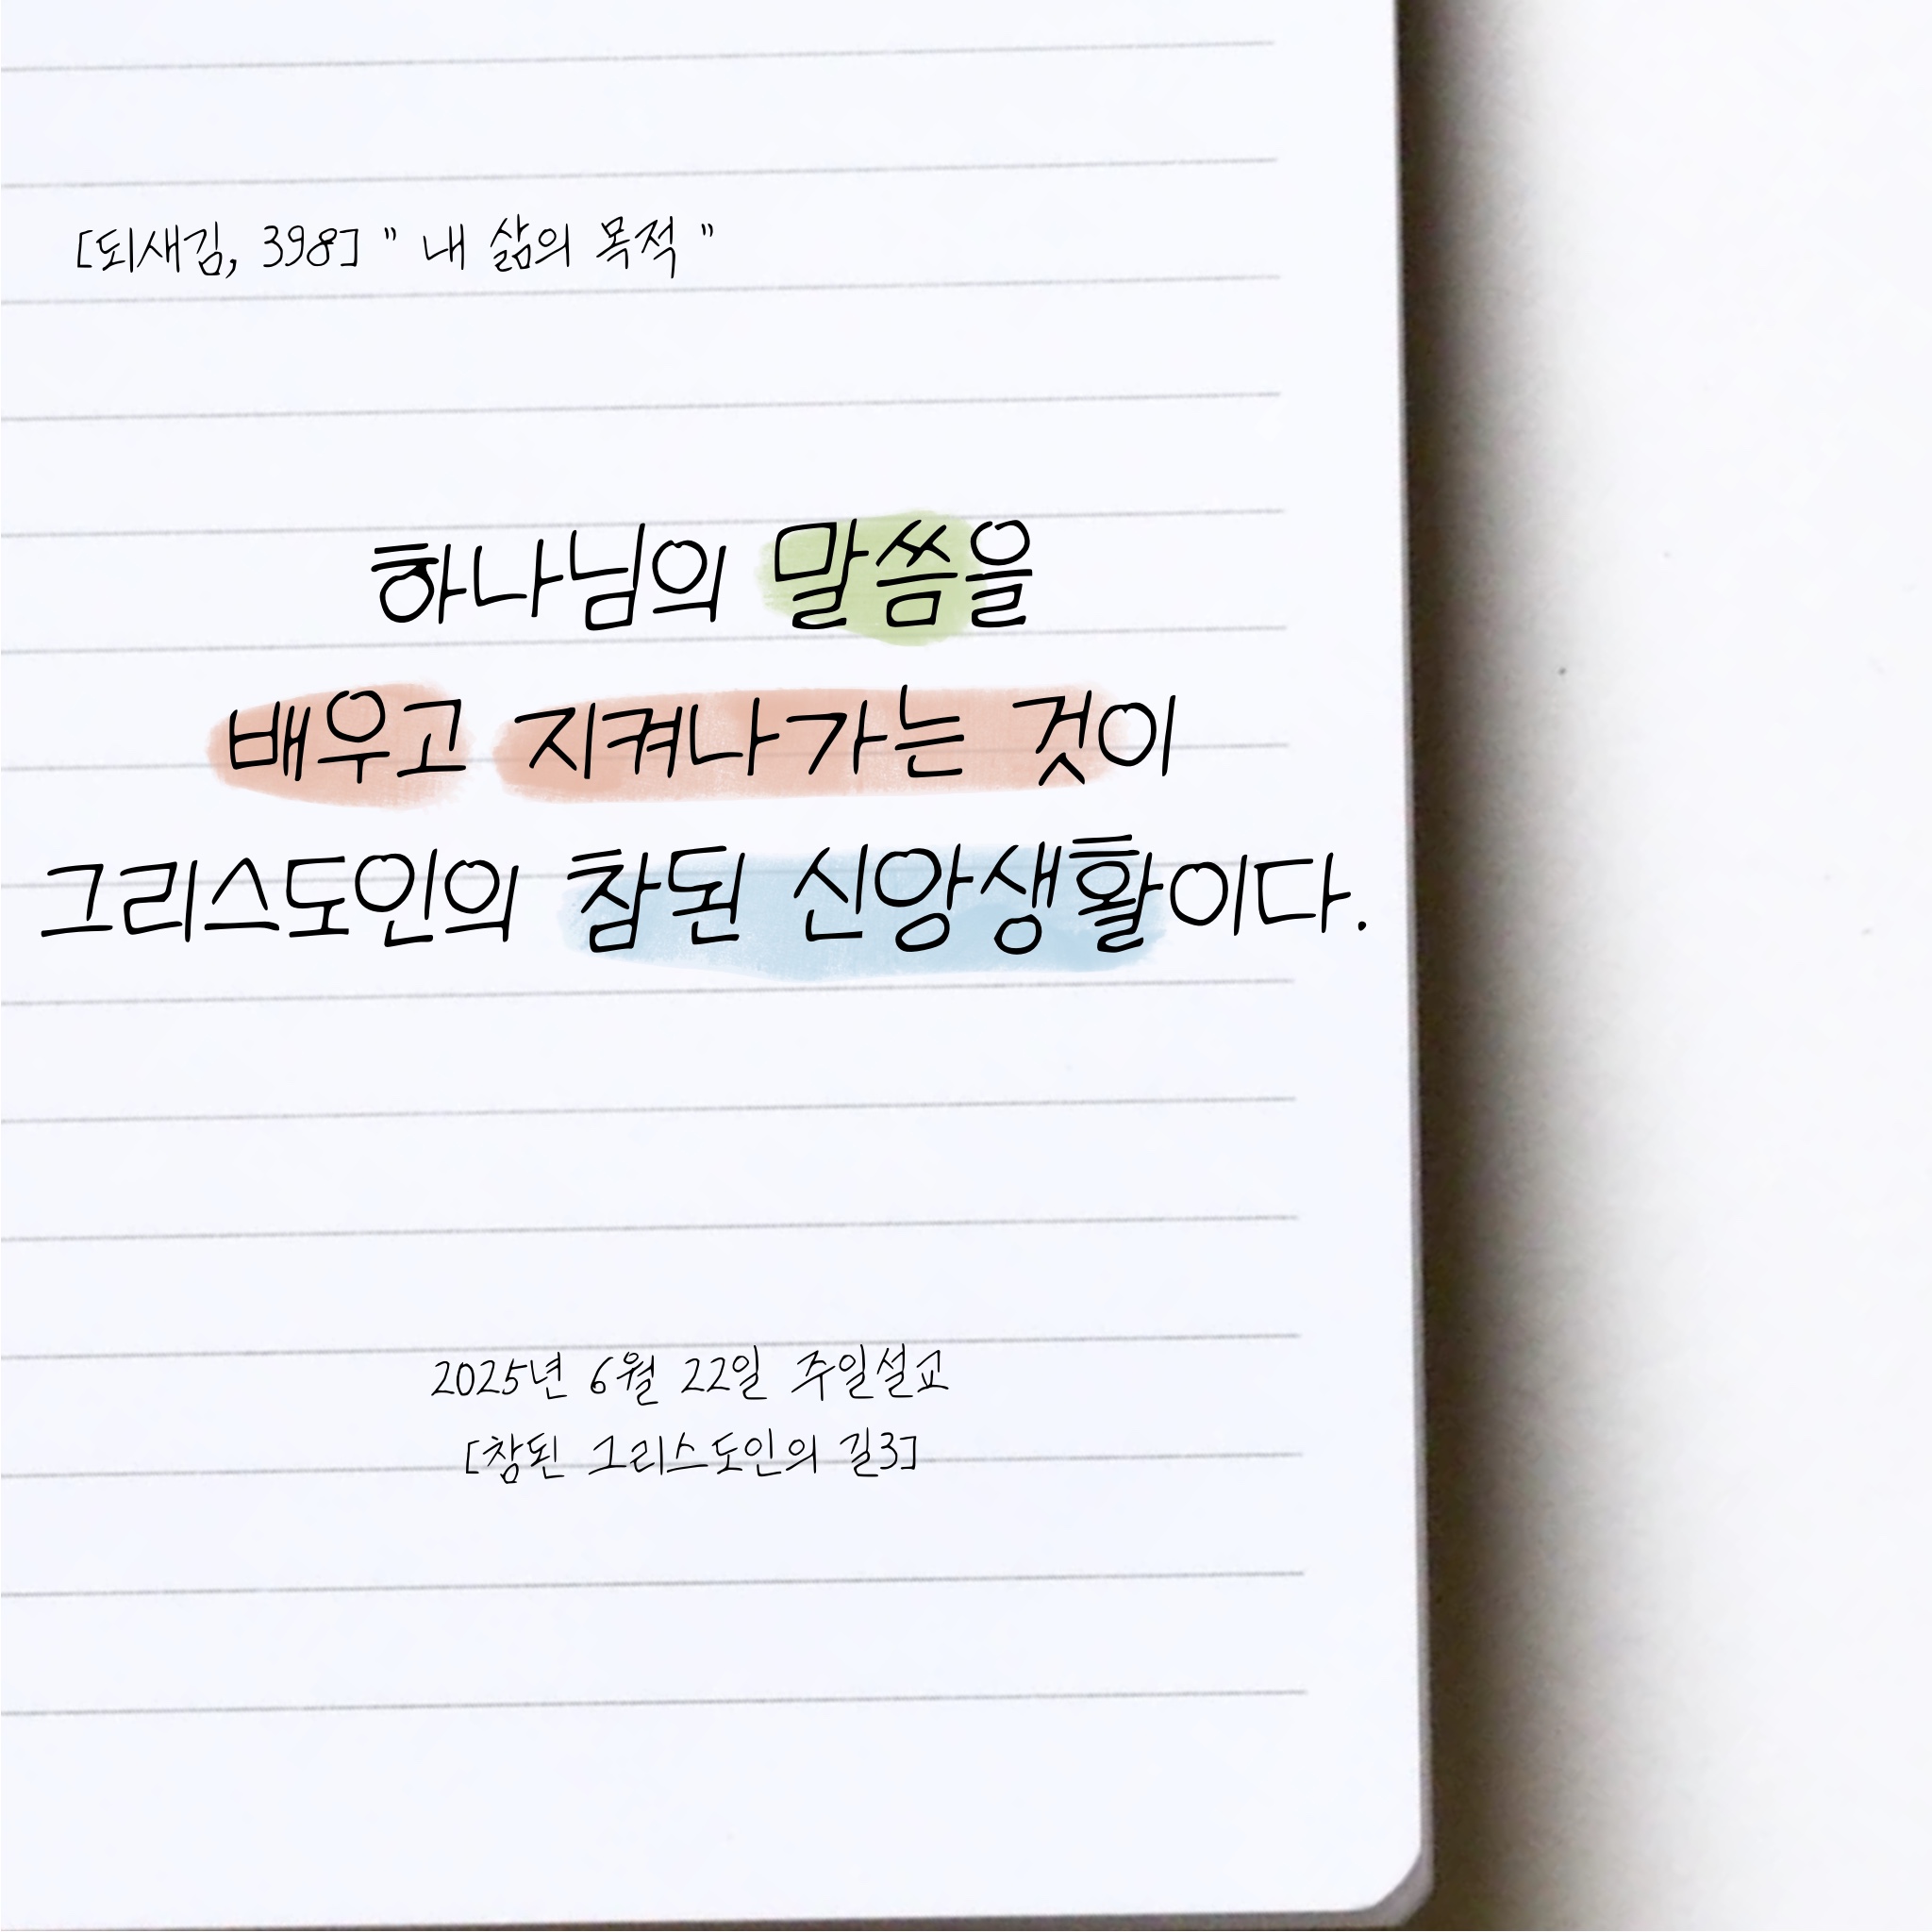 [되새김, 398] " 내 삶의 목적 "
하나님의 말씀을
배우고 지켜나가는 것이
그리스도인의 참된 신앙생활이다.
2025년 6월 22일 주일설교
[참된 그리스도인의 길3]